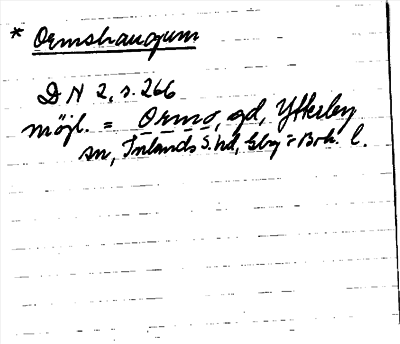 * Ormshaugum
DN 2, s. 266
möjl. = Ormo, gd, Ytterby
sn, Inlands S. hd, Gbg o Boh. l.